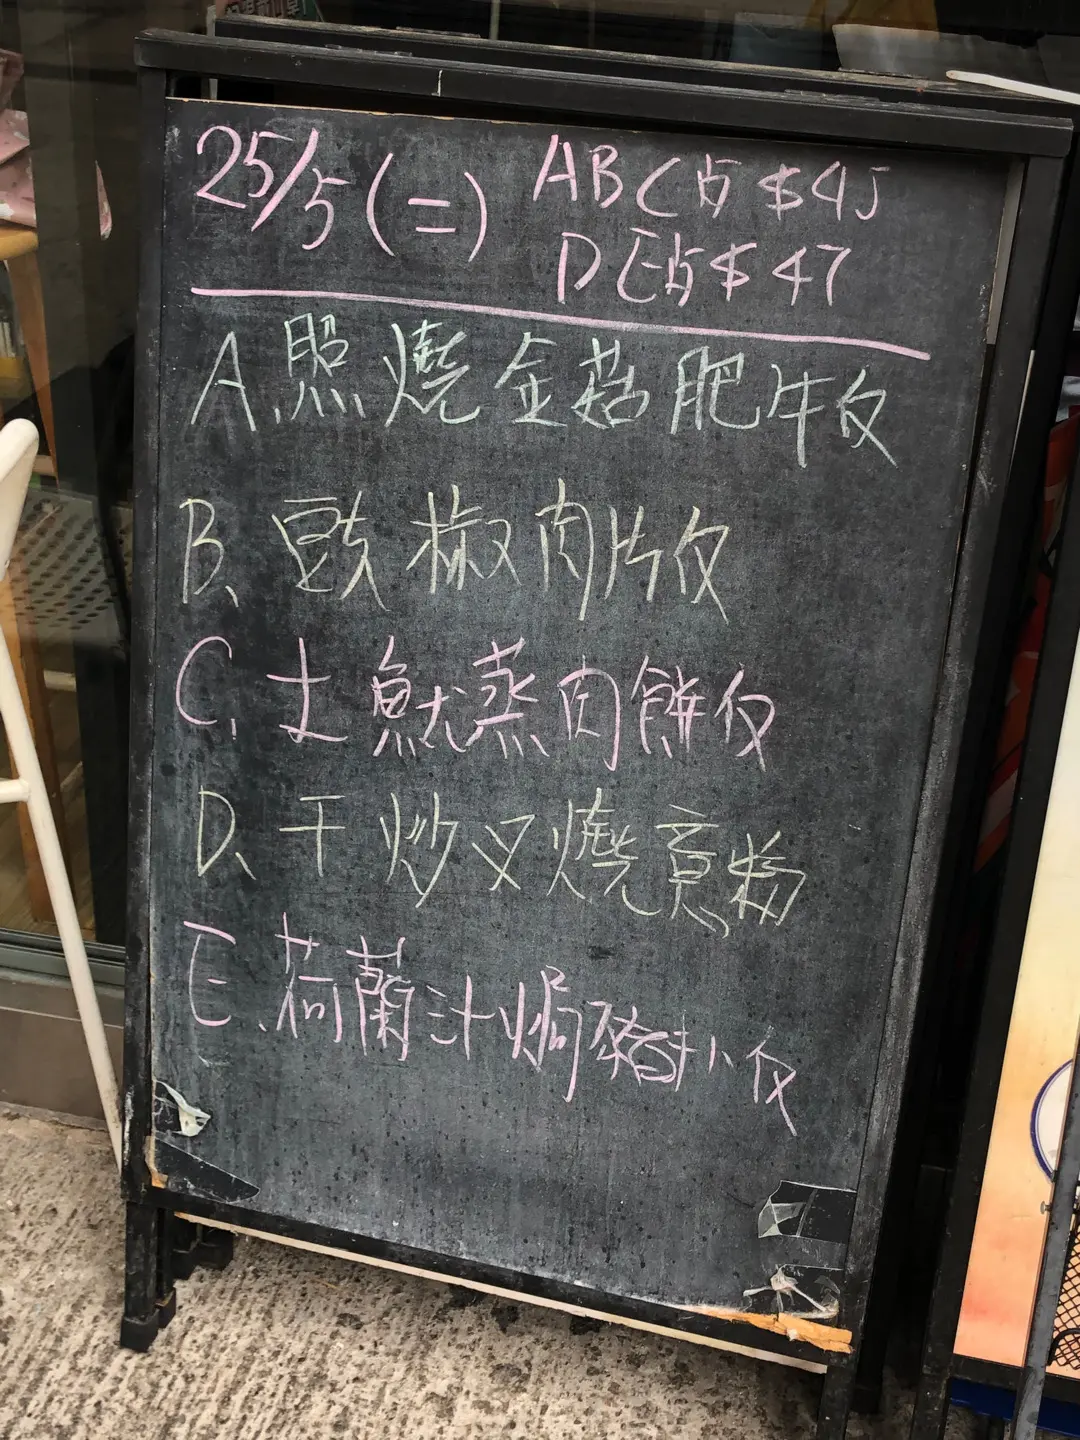 25/5 (二) ABC 占 $45
DE占 $47
A. 照燒金菇肥牛反
B、豆支椒肉片反
C. 土魷蒸肉餅反
D、干炒叉燒意粉
E、荷蘭汁焗豬扒反